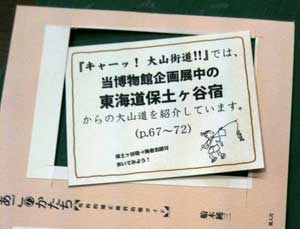 『キャーッ! 大山街道!!』では、
当博物館企画展中の
東海道保土ヶ谷宿
からの大山道を紹介しています。
(p.67〜72)
歩いてみよう!
あごのかたち
船木純三